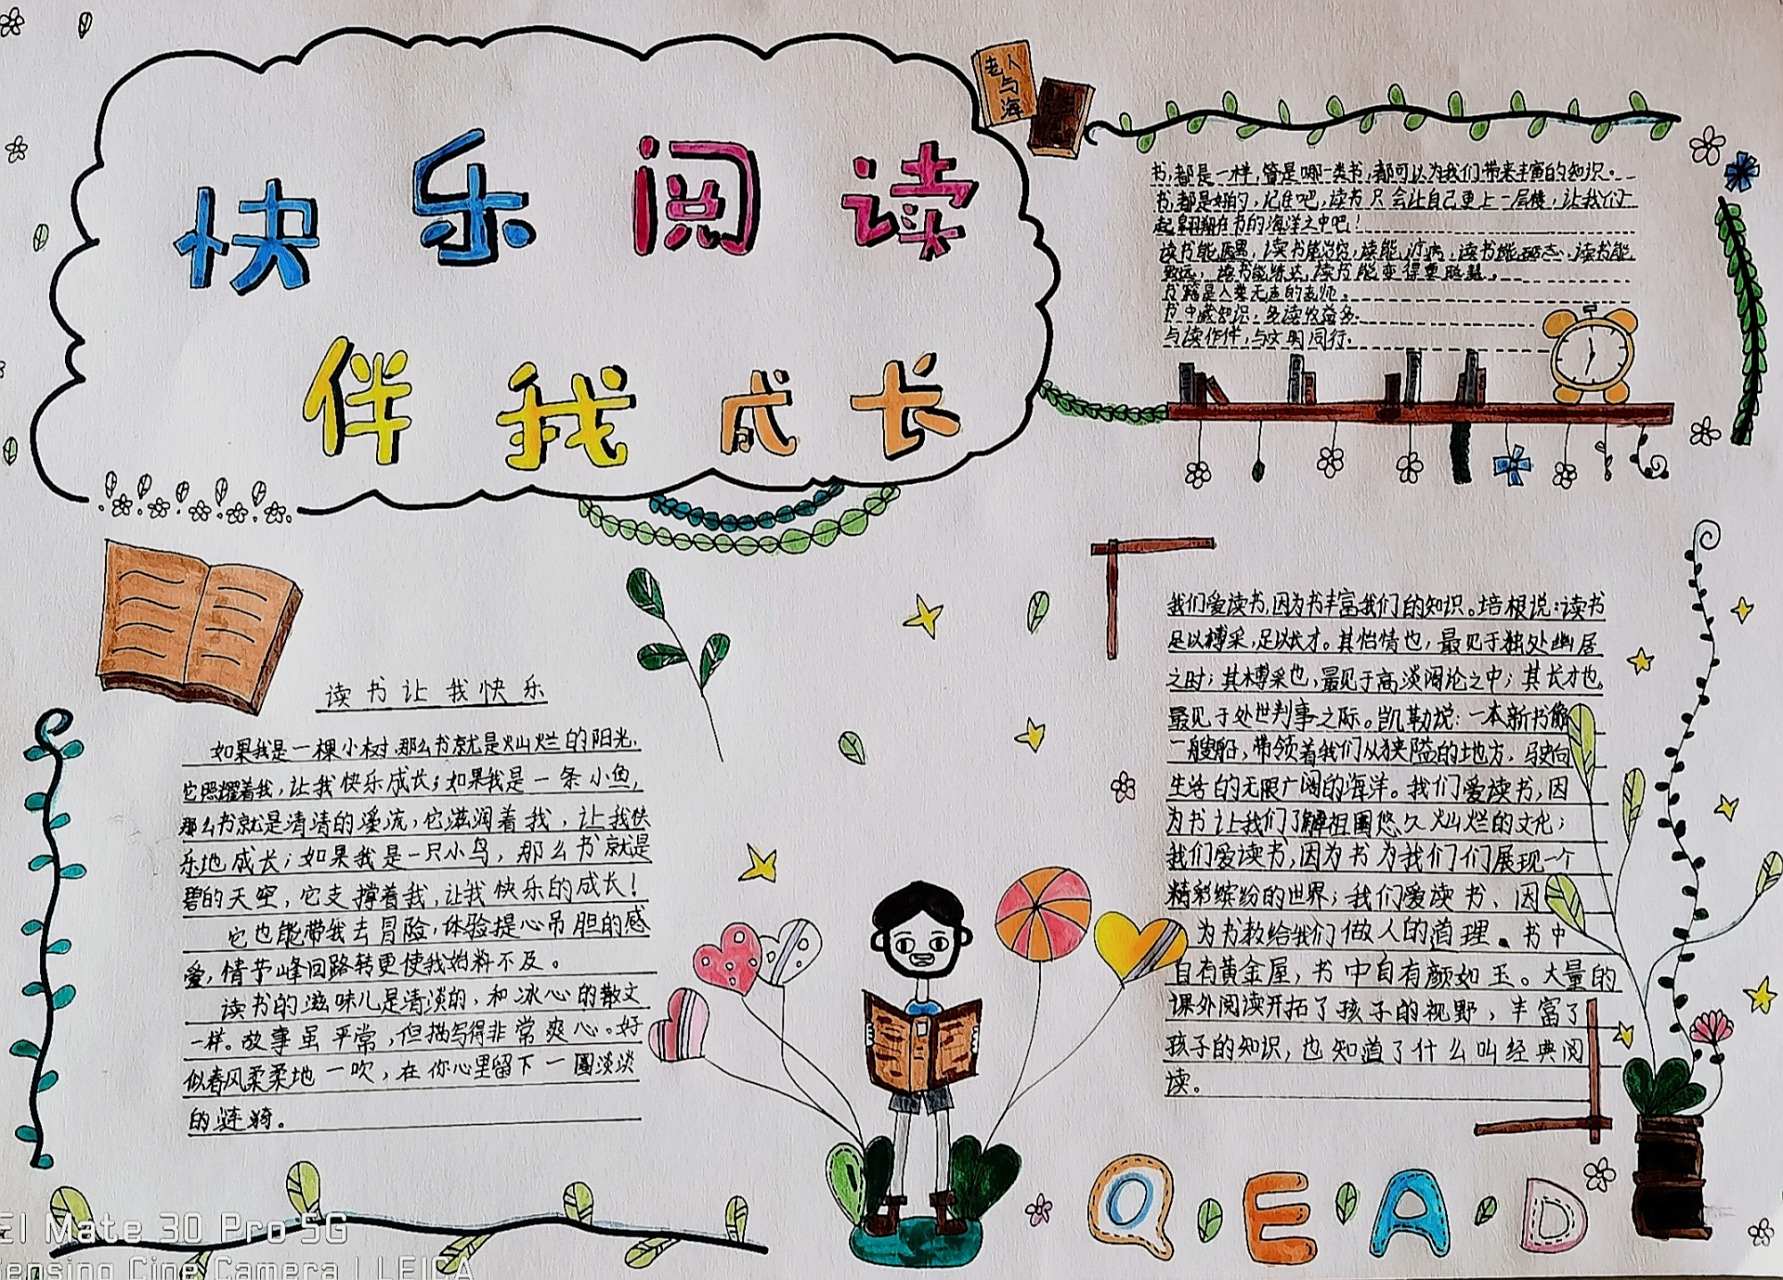 快乐阅读
伴我成长
老人
与
海
书,都是一样,管是哪一类书,都可以为我们带来丰富的知识。
书,都是好的,记住吧,读书只会让自己更上一层楼,让我们一
起翱翔在书的海洋之中吧!
读书能医愚,读书能治穷,读能疗病,读书能砺志,读书能
致远,读书能练达,读书能变得更聪慧。
书籍是人类无声的老师。
书中藏知识,多读收益多。
与读作伴,与文明同行。
读书让我快乐
如果我是一棵小树,那么书就是灿烂的阳光,
它照耀着我,让我快乐成长;如果我是一条小鱼,
那么书就是清清的溪流,它滋润着我,让我快
乐地成长;如果我是一只小鸟,那么书就是
碧的天空,它支撑着我,让我快乐的成长!
它也能带我去冒险,体验提心吊胆的感
爱,情节峰回路转更使我始料不及。
读书的滋味儿是清淡的,和冰心的散文
一样。故事虽平常,但描写得非常爽心。好
似春风柔柔地一吹,在你心里留下一圈淡淡
的涟漪。
我们爱读书,因为书丰富我们的知识。培根说:读书
足以榑采,足以长才。其怡情也,最见于独处幽居
之时;其榑采也,最见于高淡阔论之中;其长才也,
最见于处世判事之际。凯勒说:一本新书像
一艘船,带领着我们从狭隘的地方,驶向
生活的无限广阔的海洋。我们爱读书,因
为书让我们了解祖国悠久灿烂的文化;
我们爱读书,因为书为我们们展现一个
精彩缤纷的世界;我们爱读书、因
为书教给我们做人的道理。书中
自有黄金屋,书中自有颜如玉。大量的
课外阅读开拓了孩子的视野,丰富了
孩子的知识,也知道了什么叫经典阅
读。
QEAD
EI Mate 30 Pro 5G
ensing Cine Camera | LEICA